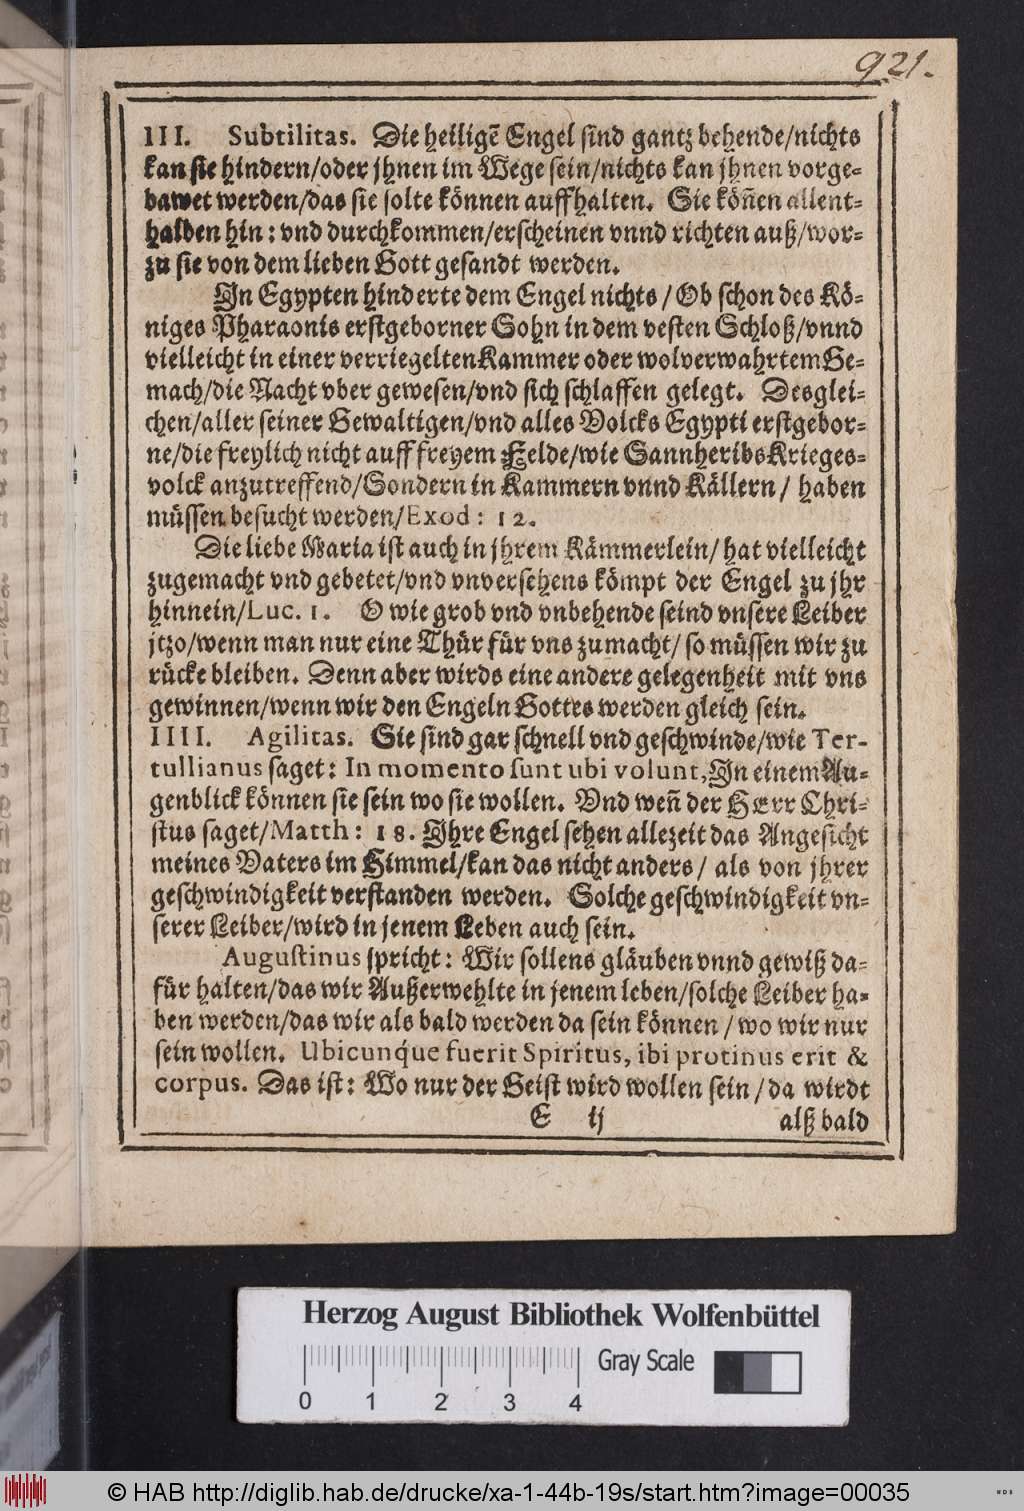 921.
III. Subtilitas. Die heiligē Engel sind gantz behende/nichts
kan sie hindern/oder jhnen im Wege sein/nichts kan jhnen vorge-
bawet werden/das sie solte können auffhalten. Sie köñen allent-
halben hin: vnd durchkommen/erscheinen vnnd richten auß/wor-
zu sie von dem lieben Gott gesandt werden.
In Egypten hinderte dem Engel nichts / Ob schon des Kö-
niges Pharaonis erstgeborner Sohn in dem vesten Schloß/vnnd
vielleicht in einer verriegelten Kammer oder wolverwahrtem Ge-
mach/die Nacht vber gewesen/vnd sich schlaffen gelegt. Desglei-
chen/aller seiner Gewaltigen/vnd alles Volcks Egypti erstgebor-
ne/die freylich nicht auff freyem Felde/wie Sannheribs Krieges-
volck anzutreffend/Sondern in Kammern vnnd Källern / haben
müssen besucht werden/Exod: 12.
Die liebe Maria ist auch in jhrem Kämmerlein/ hat vielleicht
zugemacht vnd gebetet/vnd vnversehens kömpt der Engel zu jhr
hinnein/Luc. 1. O wie grob vnd vnbehende seind vnsere Leiber
jtzo/wenn man nur eine Thür für vns zumacht/ so müssen wir zu
rücke bleiben. Denn aber wirds eine andere gelegenheit mit vns
gewinnen/wenn wir den Engeln Gottes werden gleich sein.
IIII. Agilitas. Sie sind gar schnell vnd geschwinde/wie Ter-
tullianus saget: In momento sunt ubi volunt, In einem Au-
genblick können sie sein wo sie wollen. Vnd weñ der HErr Chri-
stus saget/Matth: 18. Ihre Engel sehen allezeit das Angesicht
meines Vaters im Himmel/kan das nicht anders / als von jhrer
geschwindigkeit verstanden werden. Solche geschwindigkeit vn-
serer Leiber/wird in jenem Leben auch sein.
Augustinus spricht: Wir sollens gläuben vnnd gewiß da-
für halten/das wir Außerwehlte in jenem leben/solche Leiber ha-
ben werden/das wir als bald werden da sein können / wo wir nur
sein wollen. Ubicunque fuerit Spiritus, ibi protinus erit &
corpus. Das ist: Wo nur der Geist wird wollen sein / da wirdt
E ij alß bald
Herzog August Bibliothek Wolfenbüttel
Gray Scale
0 1 2 3 4
© HAB http://diglib.hab.de/drucke/xa-1-44b-19s/start.htm?image=00035